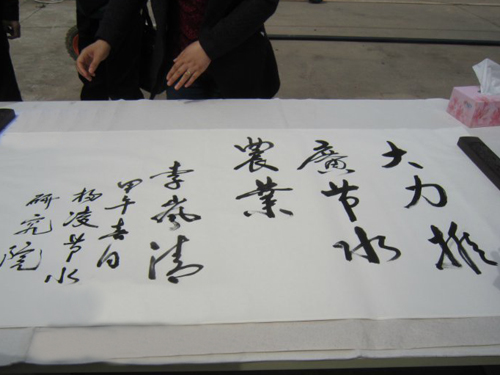 大力推
廣节水
農業
李岚清
甲午春日
杨凌节水
研究院